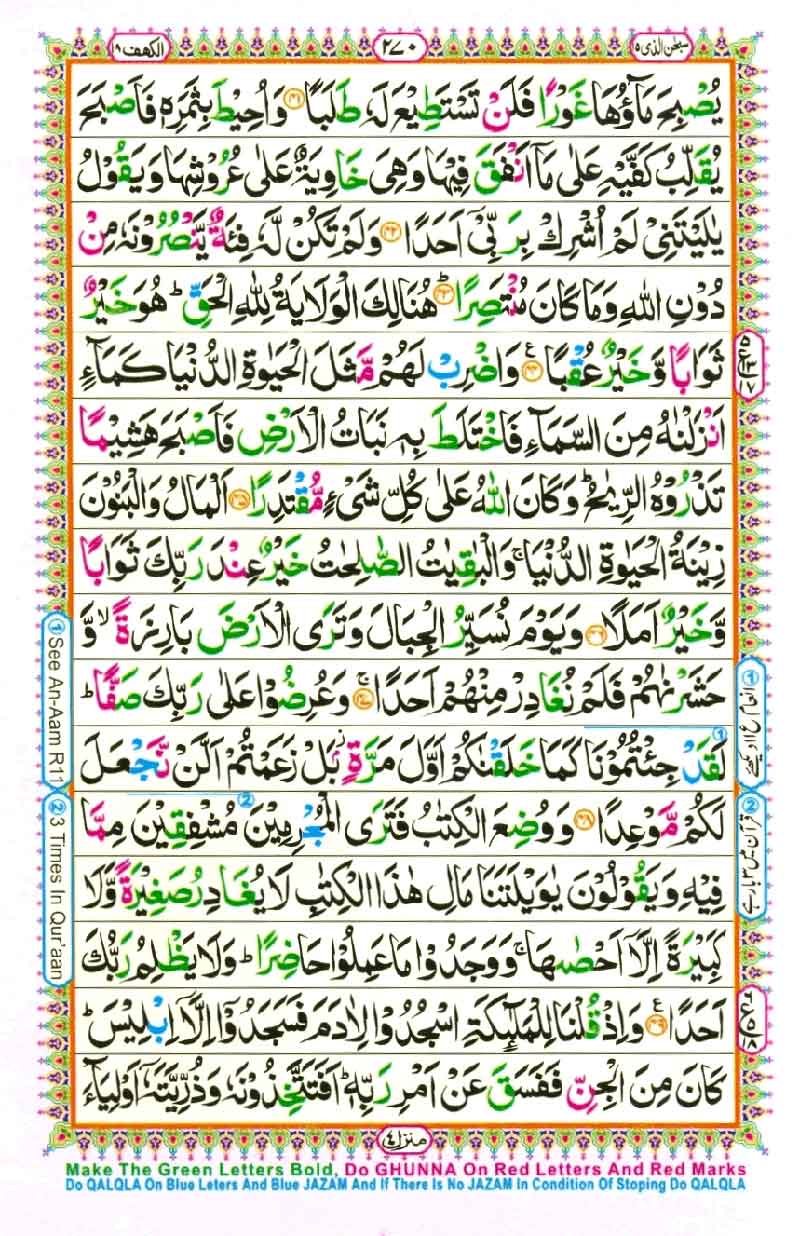 سبحٰن الذی ۱۵
۲۷۰
الکھف ۱۸
يُصْبِحَ مَآؤُهَا غَوْرًا فَلَنْ تَسْتَطِيْعَ لَهٗ طَلَبًا ﴿۴۱﴾ وَاُحِيْطَ بِثَمَرِهٖ فَاَصْبَحَ
يُقَلِّبُ كَفَّيْهِ عَلٰى مَاۤ اَنْفَقَ فِيْهَا وَهِىَ خَاوِيَةٌ عَلٰى عُرُوْشِهَا وَيَقُوْلُ
يٰلَيْتَنِىْ لَمْ اُشْرِكْ بِرَبِّىْۤ اَحَدًا ﴿۴۲﴾ وَلَمْ تَكُنْ لَّهٗ فِئَةٌ يَّنْصُرُوْنَهٗ مِنْ
دُوْنِ اللّٰهِ وَمَا كَانَ مُنْتَصِرًا ﴿۴۳﴾ؕ هُنَالِكَ الْوَلَايَةُ لِلّٰهِ الْحَقِّؕ هُوَ خَيْرٌ
ثَوَابًا وَّخَيْرٌ عُقْبًا ﴿۴۴﴾ وَاضْرِبْ لَهُمْ مَّثَلَ الْحَيٰوةِ الدُّنْيَا كَمَآءٍ
اَنْزَلْنٰهُ مِنَ السَّمَآءِ فَاخْتَلَطَ بِهٖ نَبَاتُ الْاَرْضِ فَاَصْبَحَ هَشِيْمًا
تَذْرُوْهُ الرِّيٰحُؕ وَكَانَ اللّٰهُ عَلٰى كُلِّ شَىْءٍ مُّقْتَدِرًا ﴿۴۵﴾ اَلْمَالُ وَالْبَنُوْنَ
زِيْنَةُ الْحَيٰوةِ الدُّنْيَاۚ وَالْبٰقِيٰتُ الصّٰلِحٰتُ خَيْرٌ عِنْدَ رَبِّكَ ثَوَابًا
وَّخَيْرٌ اَمَلًا ﴿۴۶﴾ وَيَوْمَ نُسَيِّرُ الْجِبَالَ وَتَرَى الْاَرْضَ بَارِزَةًۙ وَّ
حَشَرْنٰهُمْ فَلَمْ نُغَادِرْ مِنْهُمْ اَحَدًا ﴿۴۷﴾ۚ وَعُرِضُوْا عَلٰى رَبِّكَ صَفًّاؕ
لَقَدْ جِئْتُمُوْنَا كَمَا خَلَقْنٰكُمْ اَوَّلَ مَرَّةٍۭؗ بَلْ زَعَمْتُمْ اَلَّنْ نَّجْعَلَ
لَكُمْ مَّوْعِدًا ﴿۴۸﴾ وَوُضِعَ الْكِتٰبُ فَتَرَى الْمُجْرِمِيْنَ مُشْفِقِيْنَ مِمَّا
فِيْهِ وَيَقُوْلُوْنَ يٰوَيْلَتَنَا مَالِ هٰذَا الْكِتٰبِ لَا يُغَادِرُ صَغِيْرَةً وَّلَا
كَبِيْرَةً اِلَّاۤ اَحْصٰىهَاۚ وَوَجَدُوْا مَا عَمِلُوْا حَاضِرًاؕ وَلَا يَظْلِمُ رَبُّكَ
اَحَدًا ﴿۴۹﴾ وَاِذْ قُلْنَا لِلْمَلٰٓئِكَةِ اسْجُدُوْا لِاٰدَمَ فَسَجَدُوْۤا اِلَّاۤ اِبْلِيْسَؕ
كَانَ مِنَ الْجِنِّ فَفَسَقَ عَنْ اَمْرِ رَبِّهٖؕ اَفَتَتَّخِذُوْنَهٗ وَذُرِّيَّتَهٗۤ اَوْلِيَآءَ
① See An-Aam R11
② 3 Times In Qur'aan
② قرآن میں ۳ بار ہے
منزل ۴
Make The Green Letters Bold, Do GHUNNA On Red Letters And Red Marks
Do QALQLA On Blue Leters And Blue JAZAM And If There Is No JAZAM In Condition Of Stoping Do QALQLA